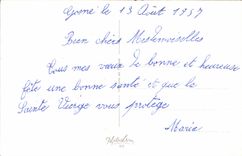 le 13 Août 1957
Bien chères Mesdemoiselles
Tous mes vœux de bonne et heureuse
fête une bonne santé et que la
Sainte Vierge vous protège
Marie